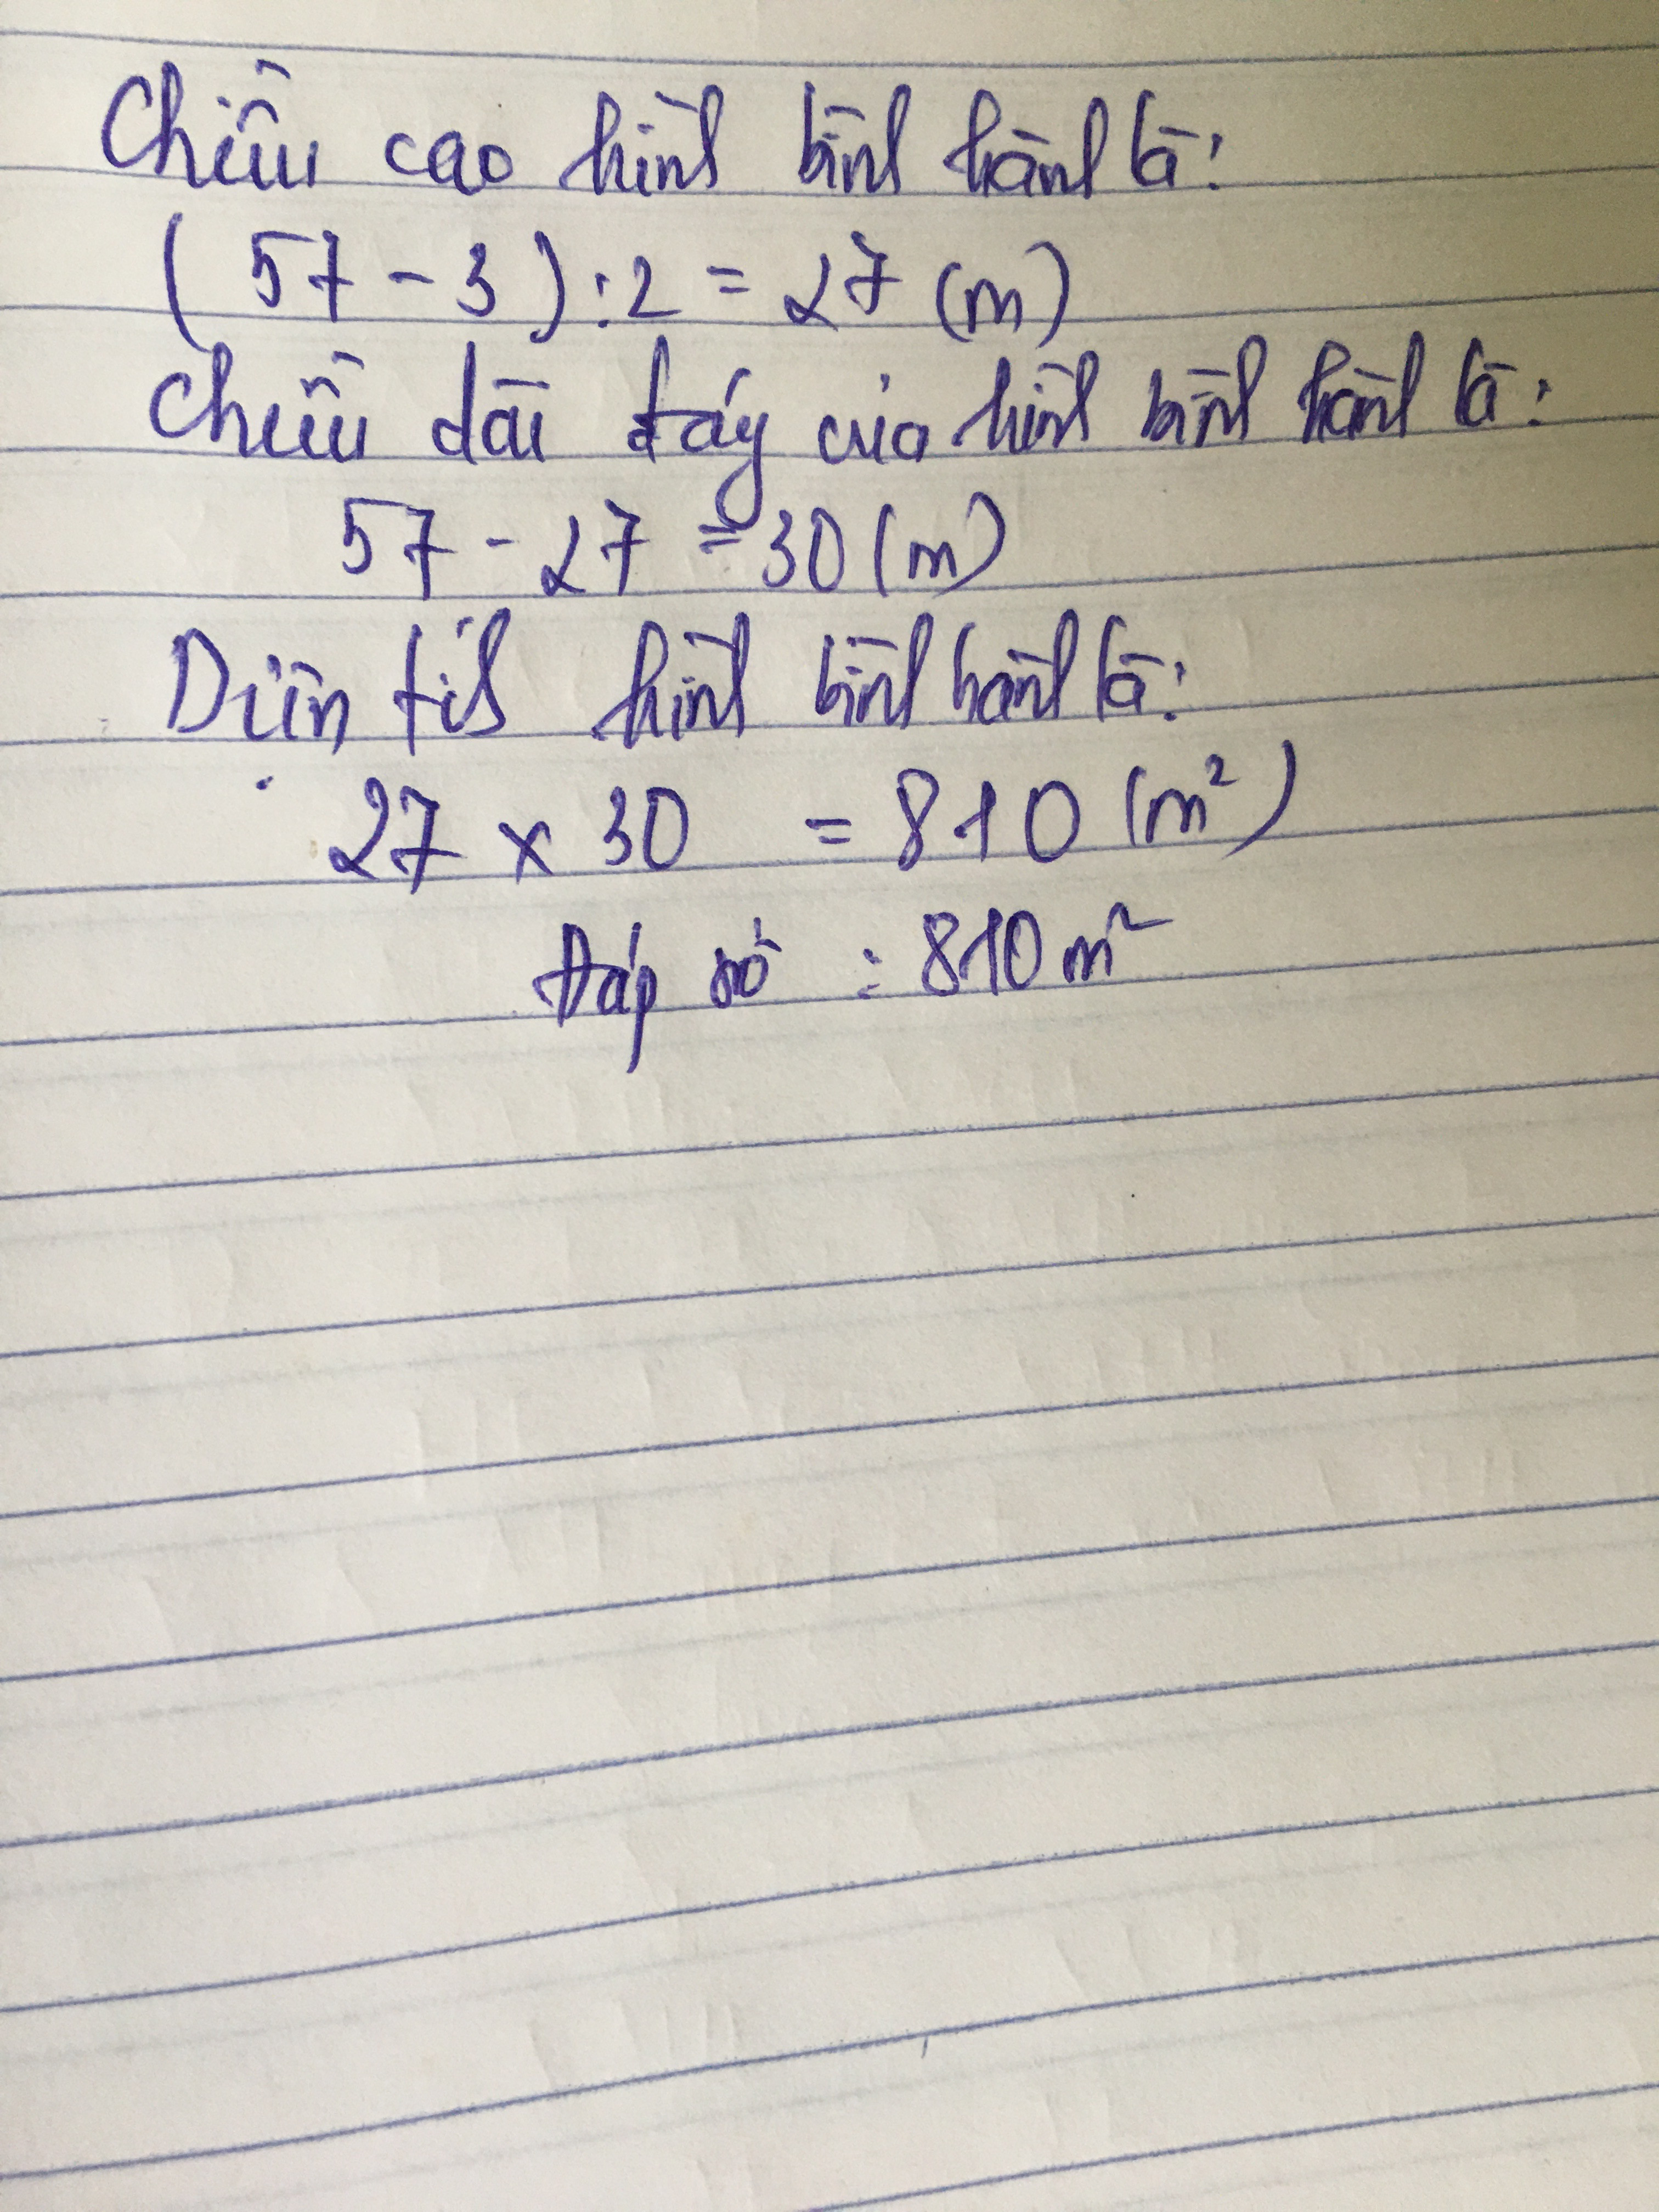 Chiều cao hình bình hành là:
( 57 - 3 ) : 2 = 27 (m)
Chiều dài đáy của hình bình hành là:
57 - 27 = 30 (m)
Diện tích hình bình hành là:
27 x 30 = 810 (m²)
Đáp số : 810 m²